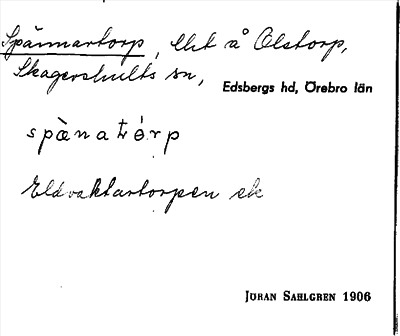 Spännartorp, å Olstorp,
Skagershults sn,
Edsbergs hd, Örebro län
spä̀natòrp
Eldvaktartorpen
JÖRAN SAHLGREN 1906